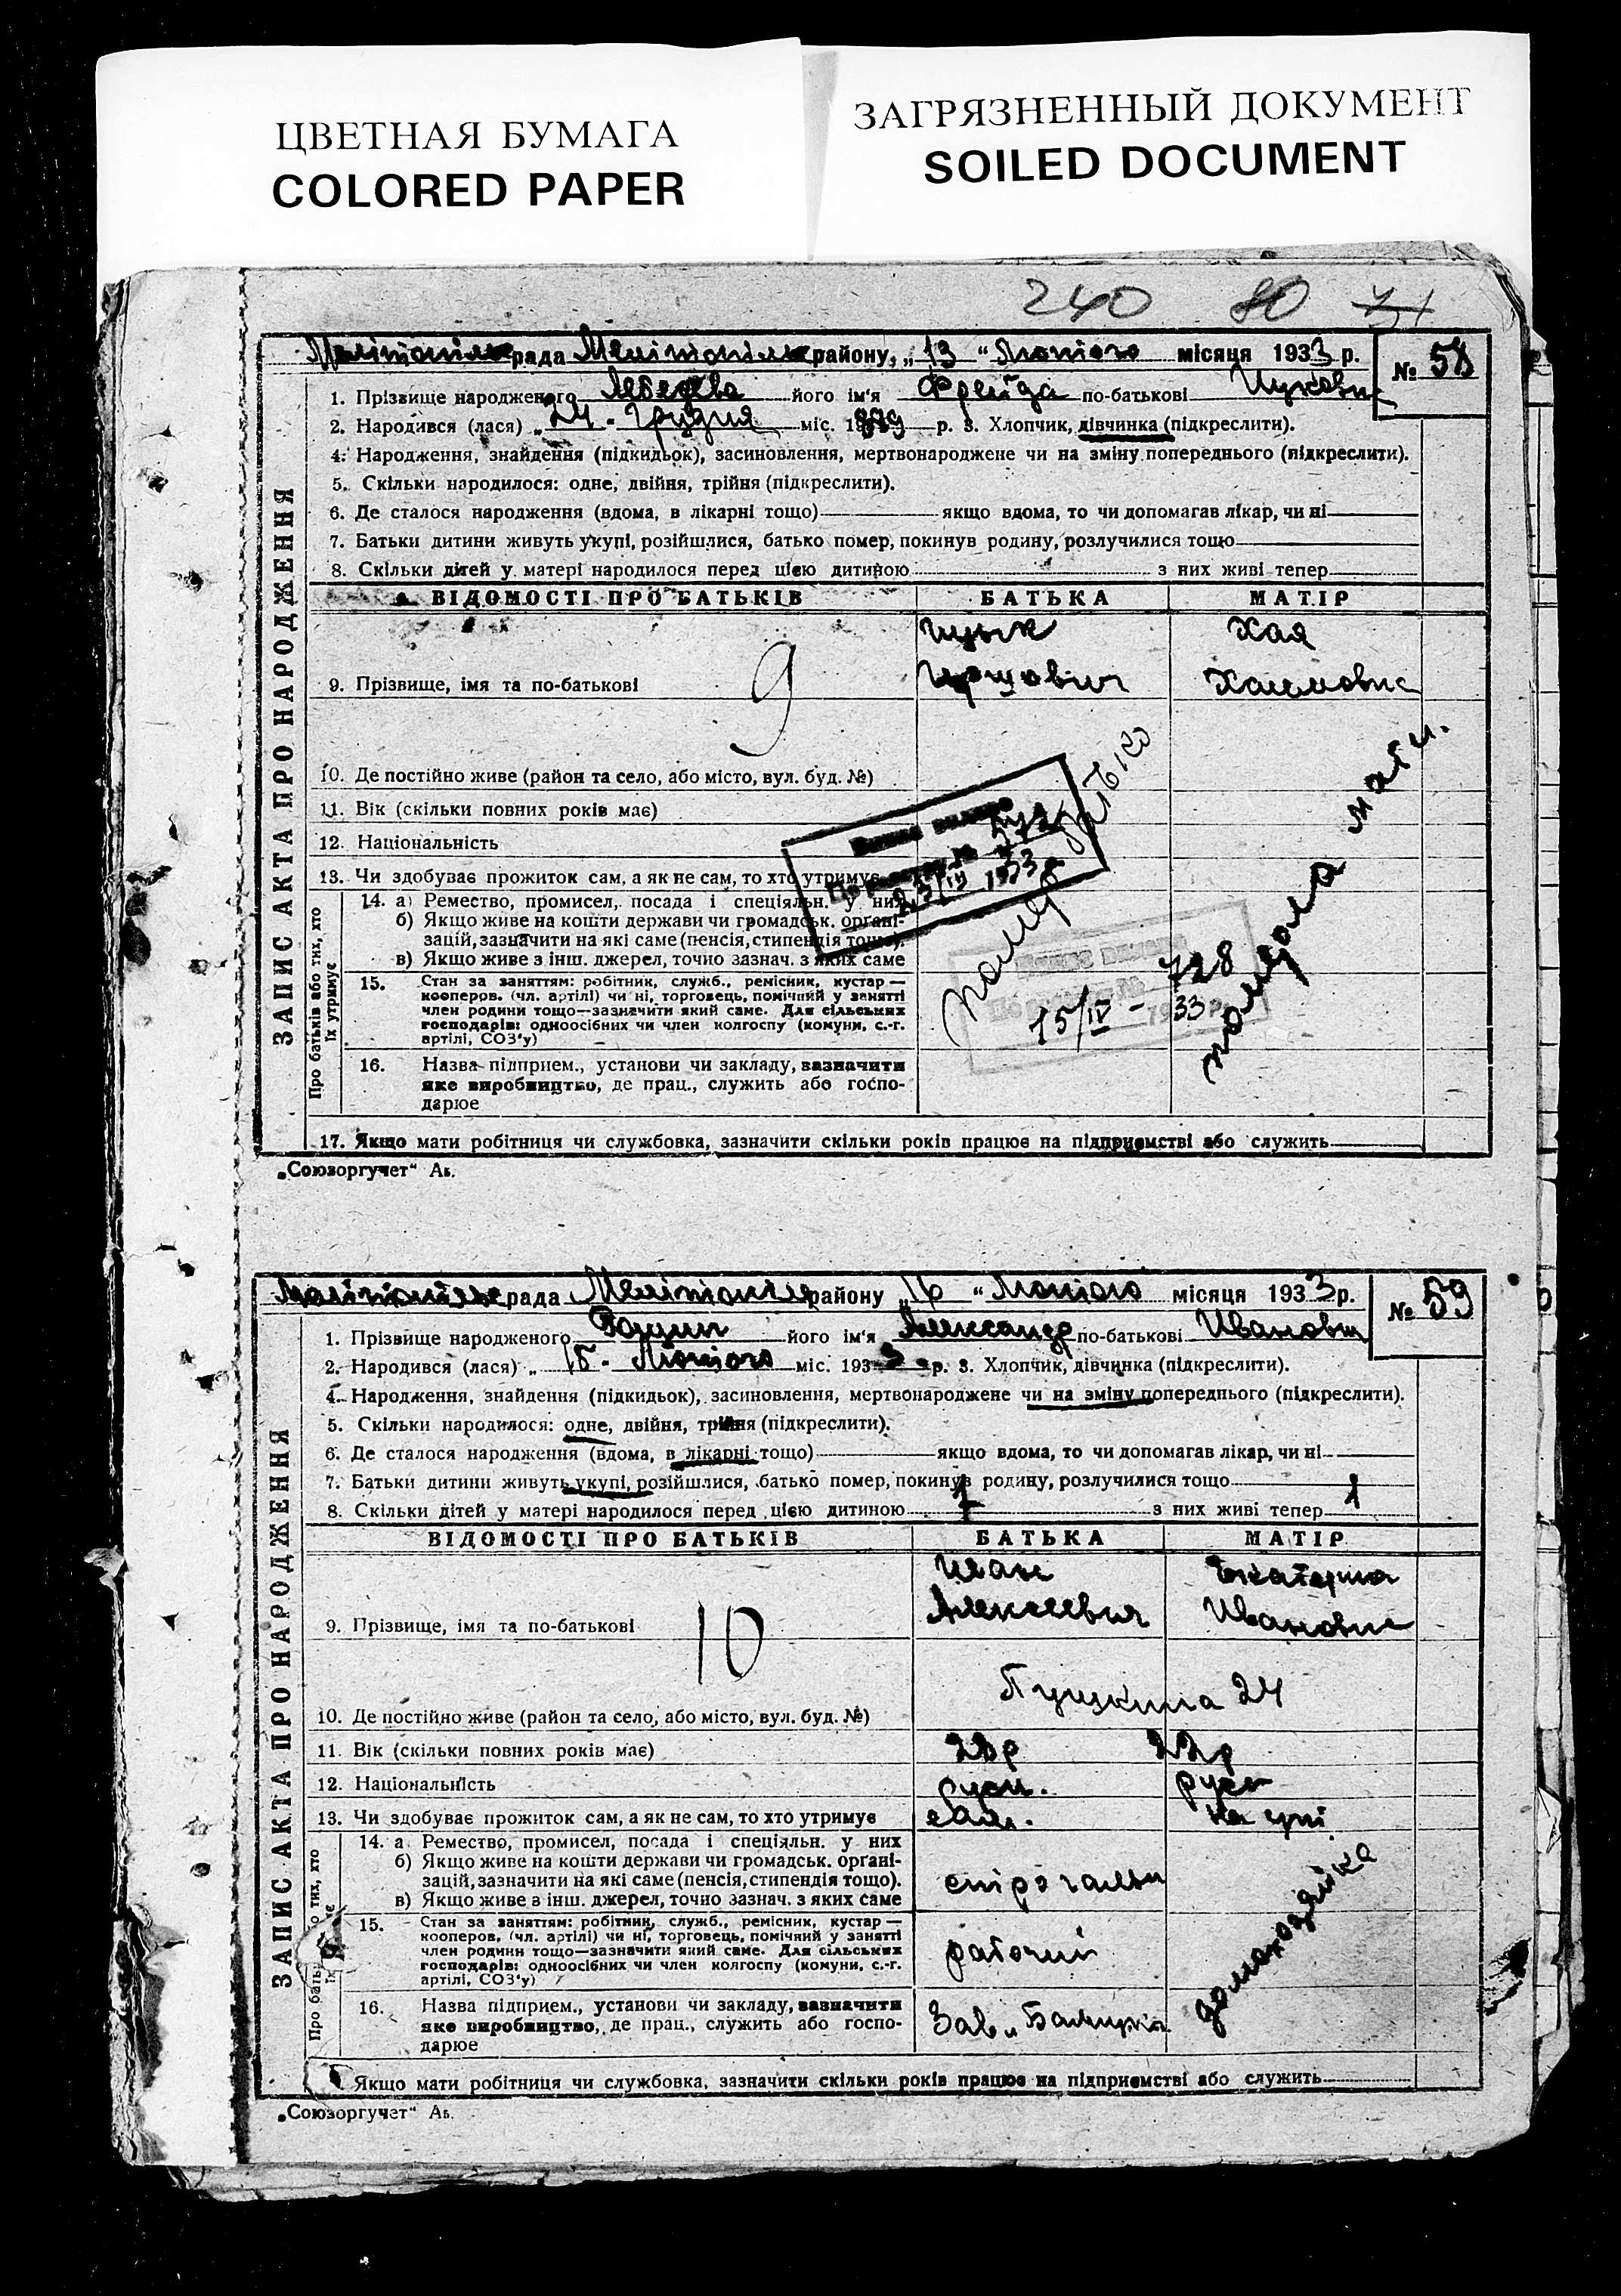 ЦВЕТНАЯ БУМАГА
COLORED PAPER
ЗАГРЯЗНЕННЫЙ ДОКУМЕНТ
SOILED DOCUMENT
240 80
рада района, „13“ Лютого місяця 1933 р. № 58
1. Прізвище народженого Лебедева його ім'я Фрейда по-батькові
2. Народився (лася) „24. Грудня міс. 1889 р. 3. Хлопчик, дівчинка (підкреслити).
4. Народження, знайдення (підкидьок), засиновлення, мертвонароджене чи на зміну попереднього (підкреслити).
5. Скільки народилося: одне, двійня, трійня (підкреслити).
6. Де сталося народження (вдома, в лікарні тощо) якщо вдома, то чи допомагав лікар, чи ні
7. Батьки дитини живуть укупі, розійшлися, батько помер, покинув родину, розлучилися тощо
8. Скільки дітей у матері народилося перед цією дитиною з них живі тепер
ЗАПИС АКТА ПРО НАРОДЖЕННЯ
ВІДОМОСТІ ПРО БАТЬКІВ БАТЬКА МАТІР
Ицык Хая
9. Прізвище, імя та по-батькові 9 Хаимовна
10. Де постійно живе (район та село, або місто, вул. буд. №)
11. Вік (скільки повних років має)
12. Національність
13. Чи здобуває прожиток сам, а як не сам, то хто утримує
Про батьків або тих, хто їх утримує
14. а) Ремество, промисел, посада і спеціяльн. у них
б) Якщо живе на кошти держави чи громадськ. органі-
зацій, зазначити на які саме (пенсія, стипендія тощо).
в) Якщо живе з інш. джерел, точно зазнач. з яких саме
15. Стан за заняттям: робітник, служб., ремісник, кустар —
кооперов. (чл. артілі) чи ні, торговець, помічний у занятті
член родини тощо—зазначити який саме. Для сільських
господарів: одноосібних чи член колгоспу (комуни, с.-г.
артілі, СОЗ'у)
16. Назва підприєм., установи чи закладу, зазначити
яке виробництво, де прац., служить або госпо-
дарює
помер батько
померла мати.
23/IV 1933
728
15/IV - 33 р.
17. Якщо мати робітниця чи службовка, зазначити скільки років працює на підприємстві або служить
„Союзоргучет“
рада району „16“ Лютого місяця 1933 р. № 59
1. Прізвище народженого його ім'я Александр по-батькові Иванович
2. Народився (лася) „15. Лютого міс. 1933 р. 3. Хлопчик, дівчинка (підкреслити).
4. Народження, знайдення (підкидьок), засиновлення, мертвонароджене чи на зміну попереднього (підкреслити).
5. Скільки народилося: одне, двійня, трійня (підкреслити).
6. Де сталося народження (вдома, в лікарні тощо) якщо вдома, то чи допомагав лікар, чи ні
7. Батьки дитини живуть укупі, розійшлися, батько помер, покинув родину, розлучилися тощо
8. Скільки дітей у матері народилося перед цією дитиною 1 з них живі тепер 1
ЗАПИС АКТА ПРО НАРОДЖЕННЯ
ВІДОМОСТІ ПРО БАТЬКІВ БАТЬКА МАТІР
Иван Екатерина
9. Прізвище, імя та по-батькові 10 Алексеевич Ивановна
10. Де постійно живе (район та село, або місто, вул. буд. №) Пушкина 24
11. Вік (скільки повних років має) 23р 22р
12. Національність руск. руск
13. Чи здобуває прожиток сам, а як не сам, то хто утримує сам.
14. а Ремество, промисел, посада і спеціяльн. у них
б) Якщо живе на кошти держави чи громадськ. органі-
зацій, зазначити на які саме (пенсія, стипендія тощо).
в) Якщо живе з інш. джерел, точно зазнач. з яких саме
15. Стан за заняттям: робітник, служб., ремісник, кустар —
кооперов. (чл. артілі) чи ні, торговець, помічний у занятті
член родини тощо—зазначити який саме. Для сільських
господарів: одноосібних чи член колгоспу (комуни, с.-г.
артілі, СОЗ'у)
рабочий
домохозяйка
16. Назва підприєм., установи чи закладу, зазначити
яке виробництво, де прац., служить або госпо-
дарюе
Зав.
Якщо мати робітниця чи службовка, зазначити скільки років працює на підприємстві або служить
„Союзоргучет“